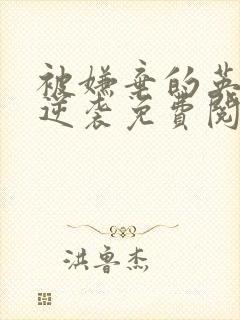 被嫌弃的英
逆袭免费阅
洪鲁杰